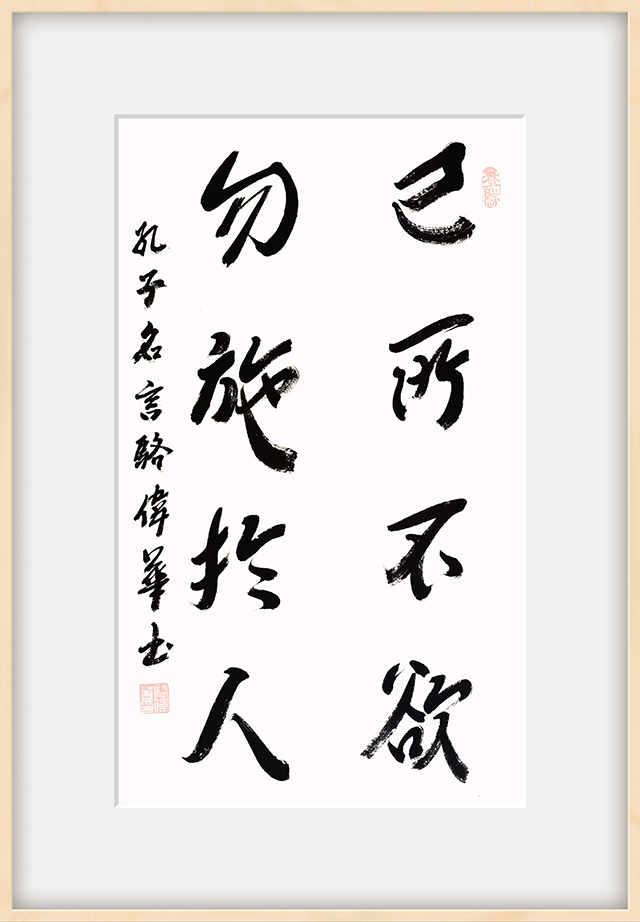 己所不欲
勿施於人
孔子名言駱偉華书